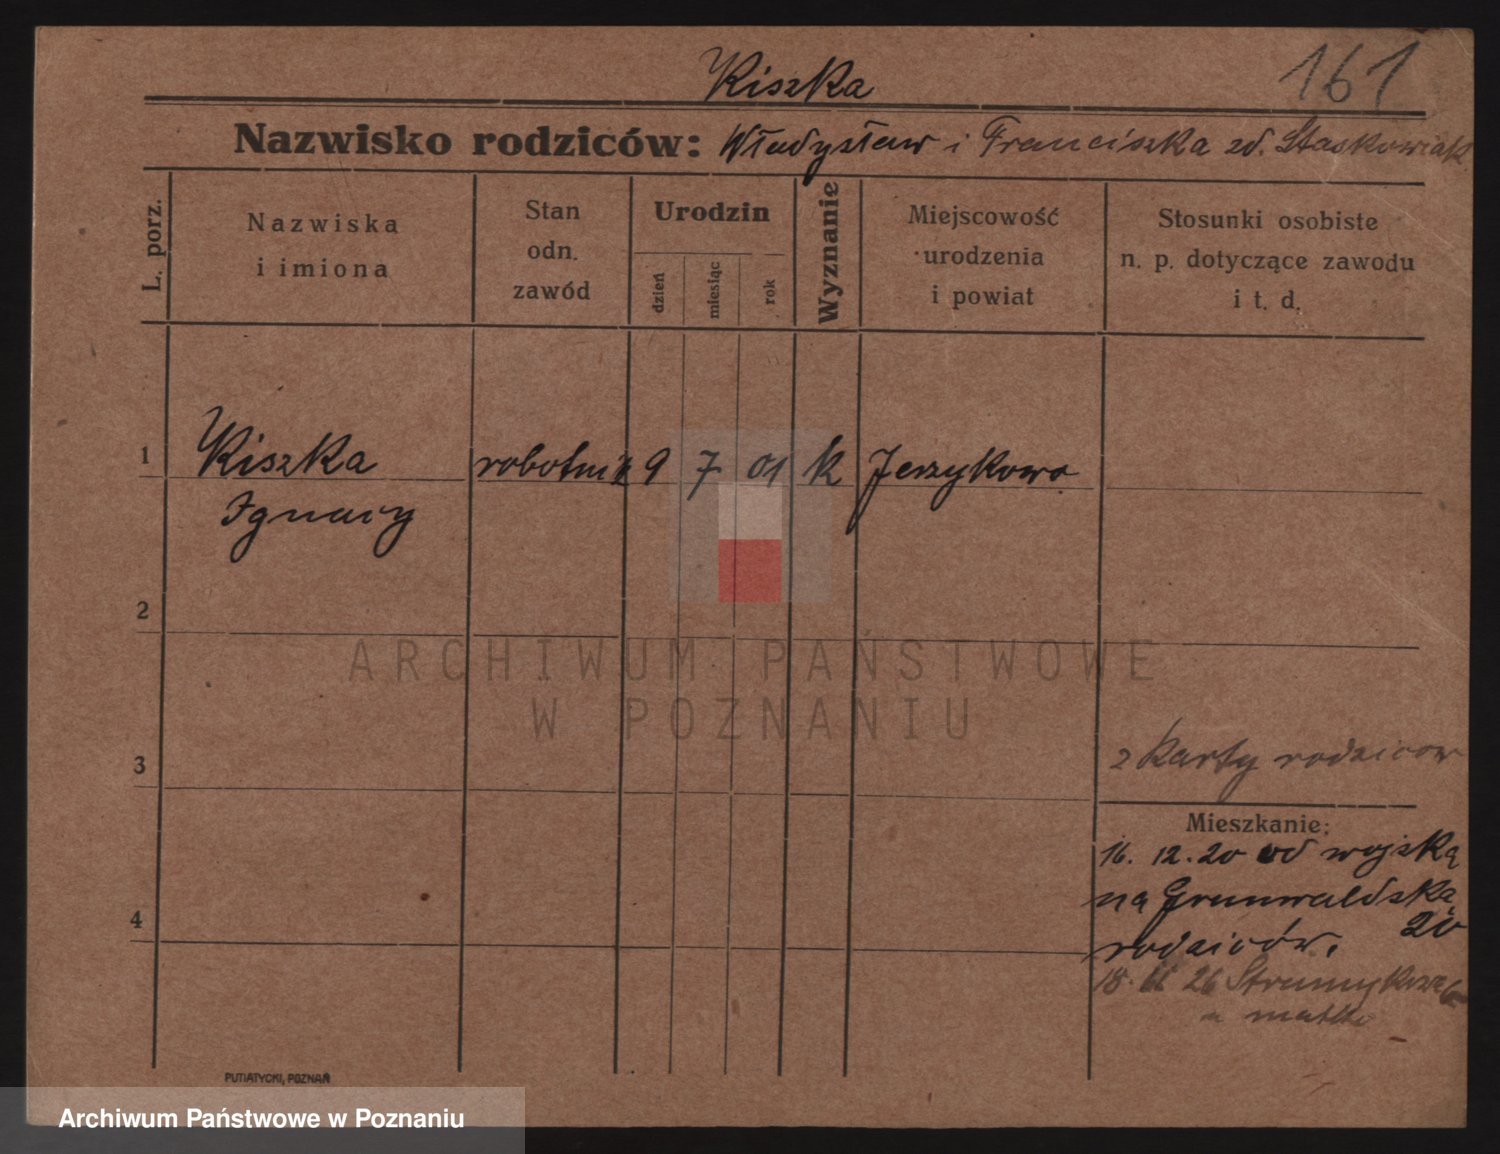 Kiszka
161
Nazwisko rodziców: Władysław i Franciszka zd. Staskowiak
L. porz.
Nazwiska
i imiona
Stan
odn.
zawód
Urodzin
dzień
miesiąc
rok
Wyznanie
Miejscowość
urodzenia
i powiat
Stosunki osobiste
n. p. dotyczące zawodu
i t. d.
1 Kiszka robotnik 9 7 01 k Jerzykowo
Ignacy
2
ARCHIWUM PAŃSTWOWE
W POZNANIU
z karty rodziców
3
Mieszkanie:
16. 12. 20 od wojska
na Grunwaldską
20
rodziców.
4
18. 26 Strumykowa
u matki
PUTIATYCKI, POZNAŃ
Archiwum Państwowe w Poznaniu